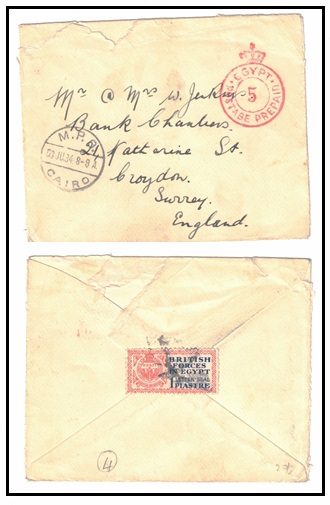 EGYPT
5
POSTAGE PREPAID
Mr & Mrs W. Jenkins
Bank Chambers.
Katherine St.
Croydon.
Surrey.
England.
M.P.O.
JU.34.8-9 A
CAIRO
BRITISH
FORCES
IN EGYPT
LETTER SEAL
1 PIASTRE
4